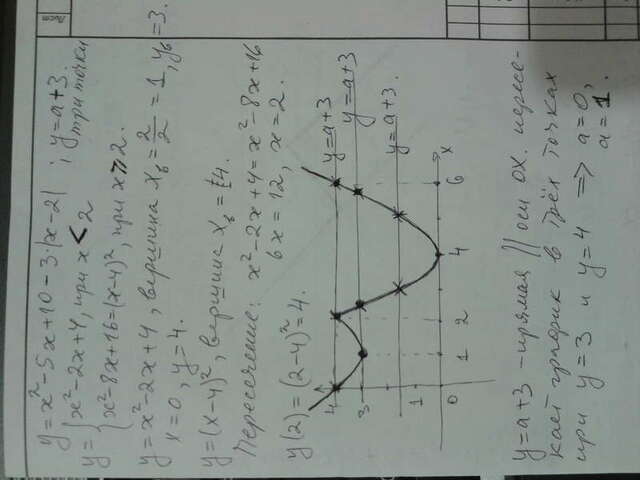 Лист
y=x²-5x+10-3·|x-2| ; y=a+3.
три точки
y={x²-2x+4, при x<2
{x²-8x+16=(x-4)², при x≥2.
y=x²-2x+4, вершина xв=2/2=1, yв=3.
x=0, y=4.
y=(x-4)², вершина xв=4.
Пересечение: x²-2x+4=x²-8x+16
6x=12, x=2.
y(2)=(2-4)²=4.
4 y=a+3
3 y=a+3
y=a+3.
1
0 1 2 4 6 x
y=a+3 -прямая || оси ОХ. пересе-
кает график в трёх точках
при y=3 и y=4 => a=0,
a=1.